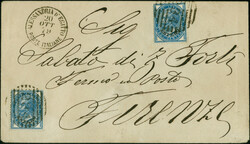 ALESSANDRIA D'EGITTO
20
OTT
Sig.
Sabato di
Forti
Fermo in Posta
FIRENZE